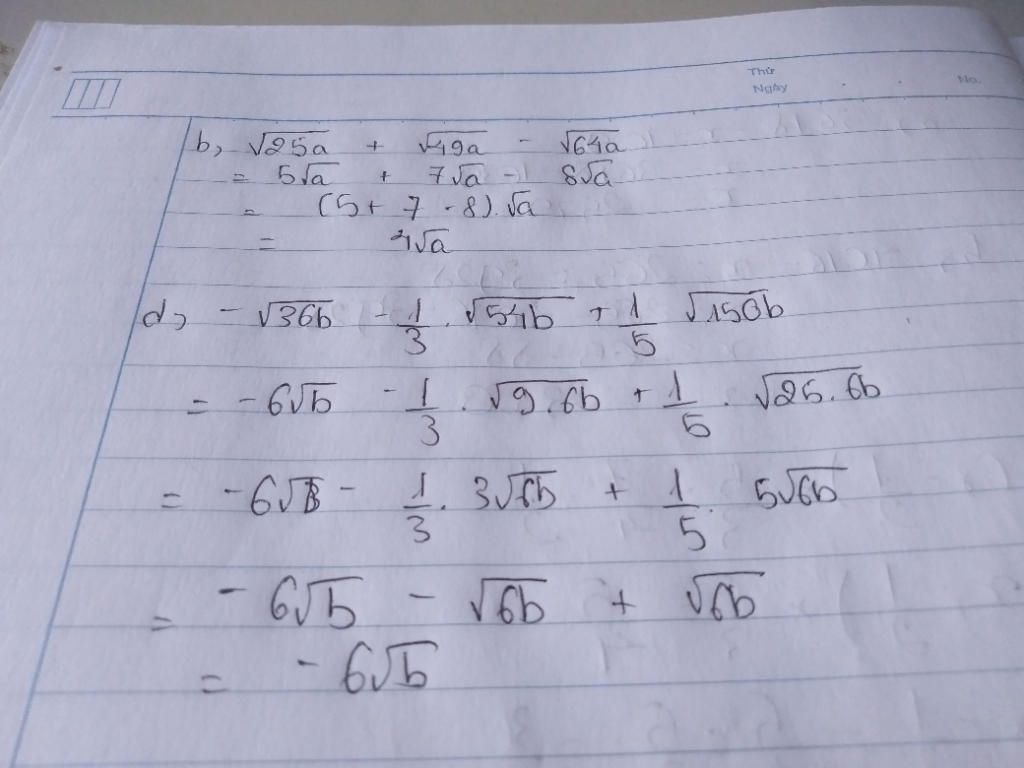 Thứ
Ngày No.
b, √25a + √49a - √64a
= 5√a + 7√a - 8√a
= (5 + 7 - 8).√a
= 4√a
d, -√36b - 1/3 . √54b + 1/5 √150b
= -6√b - 1/3 . √9.6b + 1/5 . √25.6b
= -6√b - 1/3 . 3√6b + 1/5 . 5√6b
= -6√b - √6b + √6b
= -6√b